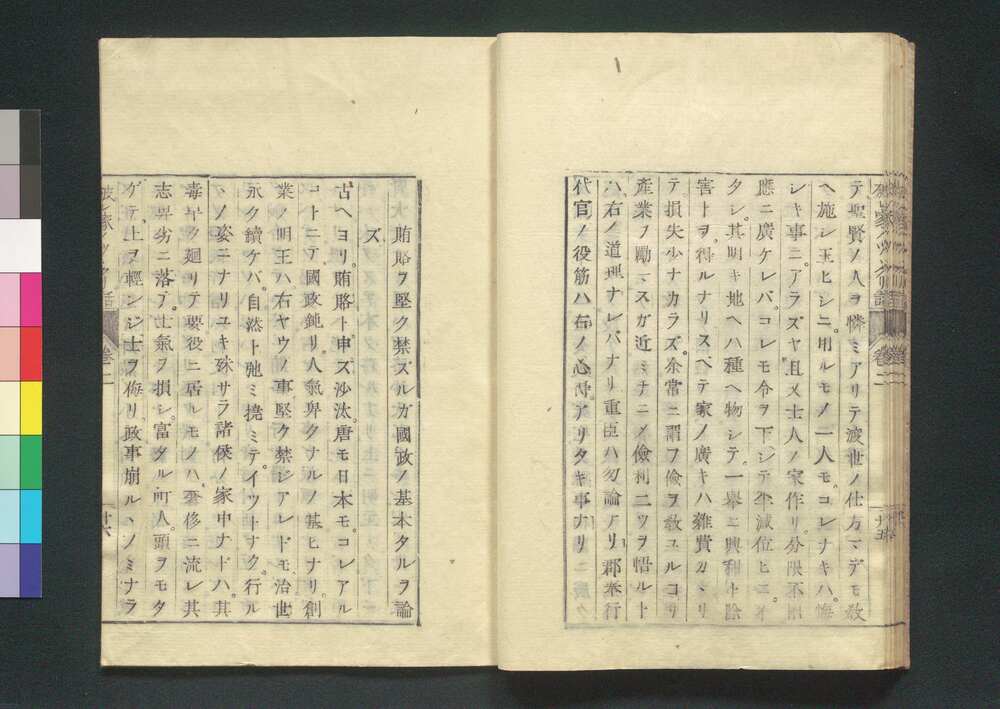 テ聖賢ノ人ヲ憐ミアリテ渡世ノ仕方マデモ敎
ヘ施シ玉ヒシニ。用ルモノ一人モ。コレナキハ。悔
シキ事ニアラズヤ且又士人ノ家作リ。分限不相
應ニ廣ケレバ。コレモ令ヲ下シテ半減位ヒニオ
タシ。其明キ地ヘハ種ヘ物シテ。一擧ニ興利ト除
害トヲ。得ルナリスベテ家ノ廣キハ雜費カヽリ
テ損失少ナカラズ。余常ニ謂フ儉ヲ敎ユルコリ
産業ヲ勵マスガ近ミチニノ儉利二ツヲ悟ルト
ハ右ノ道理ナレバナリ重臣ハ勿論アリ郡奉行
代官ノ役筋ハ右ノ心得アリタキ事ナリ
卷二
廿五
賄賂ヲ堅ク禁ズルガ國政ノ基本タルヲ論
ズ
古ヘヨリ。賄賂ト申ズ沙汰。唐モ日本モ。コレアル
コトニテ。國政鈍リ。人氣卑クナルノ基ヒナリ。創
業ノ明王ハ右ヤウノ事堅ク禁ジアレドモ治世
永ク續ケバ。自然ト弛ミ撓ミテ。イツトナク。行ル
ヽノ姿ニナリユキ殊サラ諸侯ノ家中ナドハ。其
毒早ク廻リテ要役ニ居ルモノハ。奢侈ニ流レ其
志卑劣ニ落ア。士氣ヲ損シ。富タル町人。頭ヲモタ
ゲテ。上ヲ輕ンジ士ヲ侮リ政事崩ルヽノミナラ
卷二
廿六